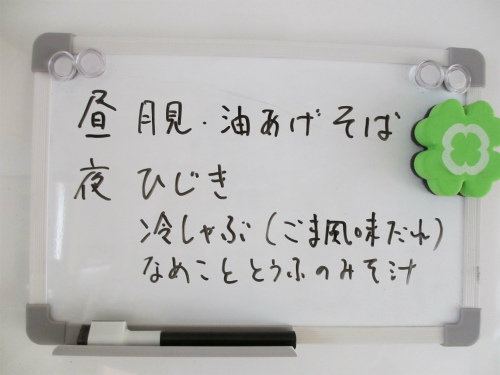 昼 月見・油あげそば
夜 ひじき
冷しゃぶ(ごま風味だれ)
なめこととうふのみそ汁